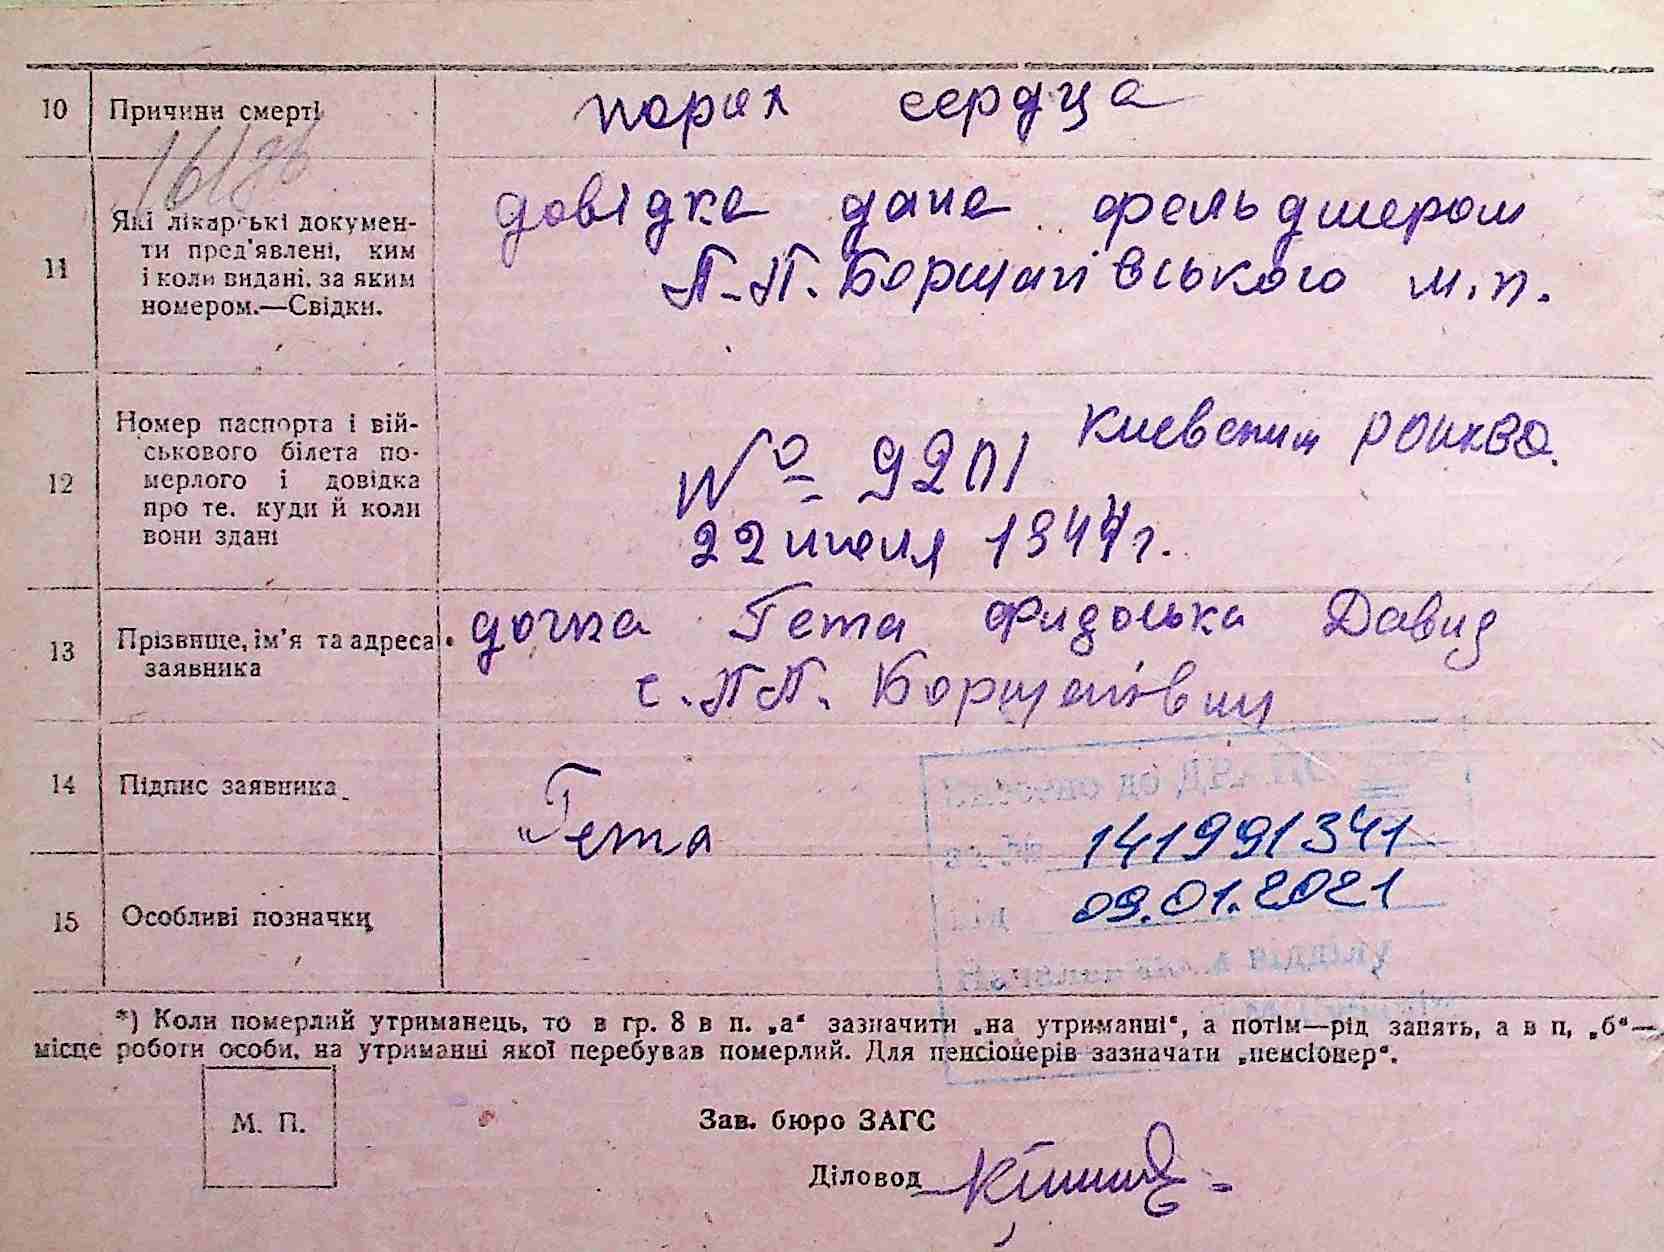 10 Причини смерті порок сердца
16/
11 Які лікарські докумен-
ти пред'явлені, ким
і коли видані, за яким
номером.—Свідки.
довідка дана фельдшером
П-П. Борщагівського м.п.
12 Номер паспорта і вій-
ськового білета по-
мерлого і довідка
про те, куди й коли
вони здані
№ 92П1
22 июля 1944 г.
13 Прізвище, ім'я та адреса
заявника
дочка Гета Давид
с. П.П. Борщагівци
14 Підпис заявника
Гета
141991341
09.01.2021
15 Особливі позначки
*) Коли померлий утриманець, то в гр. 8 в п. „а“ зазначити „на утриманні“, а потім—рід занять, а в п, „б“—
місце роботи особи, на утриманні якої перебував померлий. Для пенсіонерів зазначати „пенсіонер“.
М. П.
Зав. бюро ЗАГС
Діловод